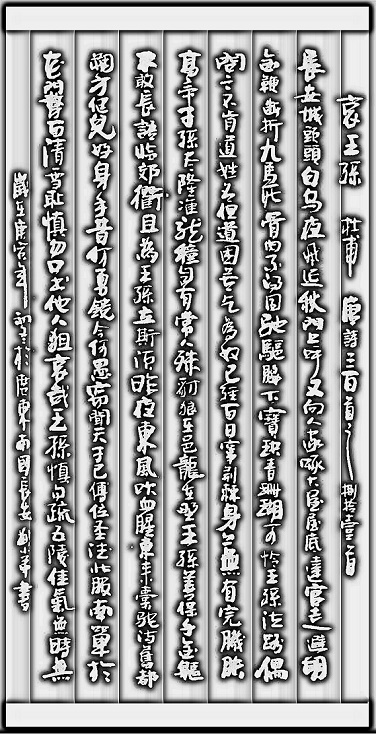 哀王孫 杜甫 唐詩三百首之捌拾壹首
長安城頭頭白烏夜飛延秋門上呼又向人家啄大屋屋底達官走避胡
金鞭斷折九馬死骨肉不得同馳驅腰下寶玦青珊瑚可憐王孫泣路隅
問之不肯道姓名但道困苦乞為奴已經百日竄荊棘身上無有完肌膚
高帝子孫盡隆準龍種自與常人殊豺狼在邑龍在野王孫善保千金軀
不敢長語臨郊衢且為王孫立斯須昨夜東風吹血腥東來橐駝滿舊都
朔方健兒好身手昔何勇銳今何愚竊聞天子已傳位聖德北服南單於
花門剺面請雪恥慎勿口出他人狙哀哉王孫慎勿疏五陵佳氣無時無
歲在庚寅年於廣東南國長安書